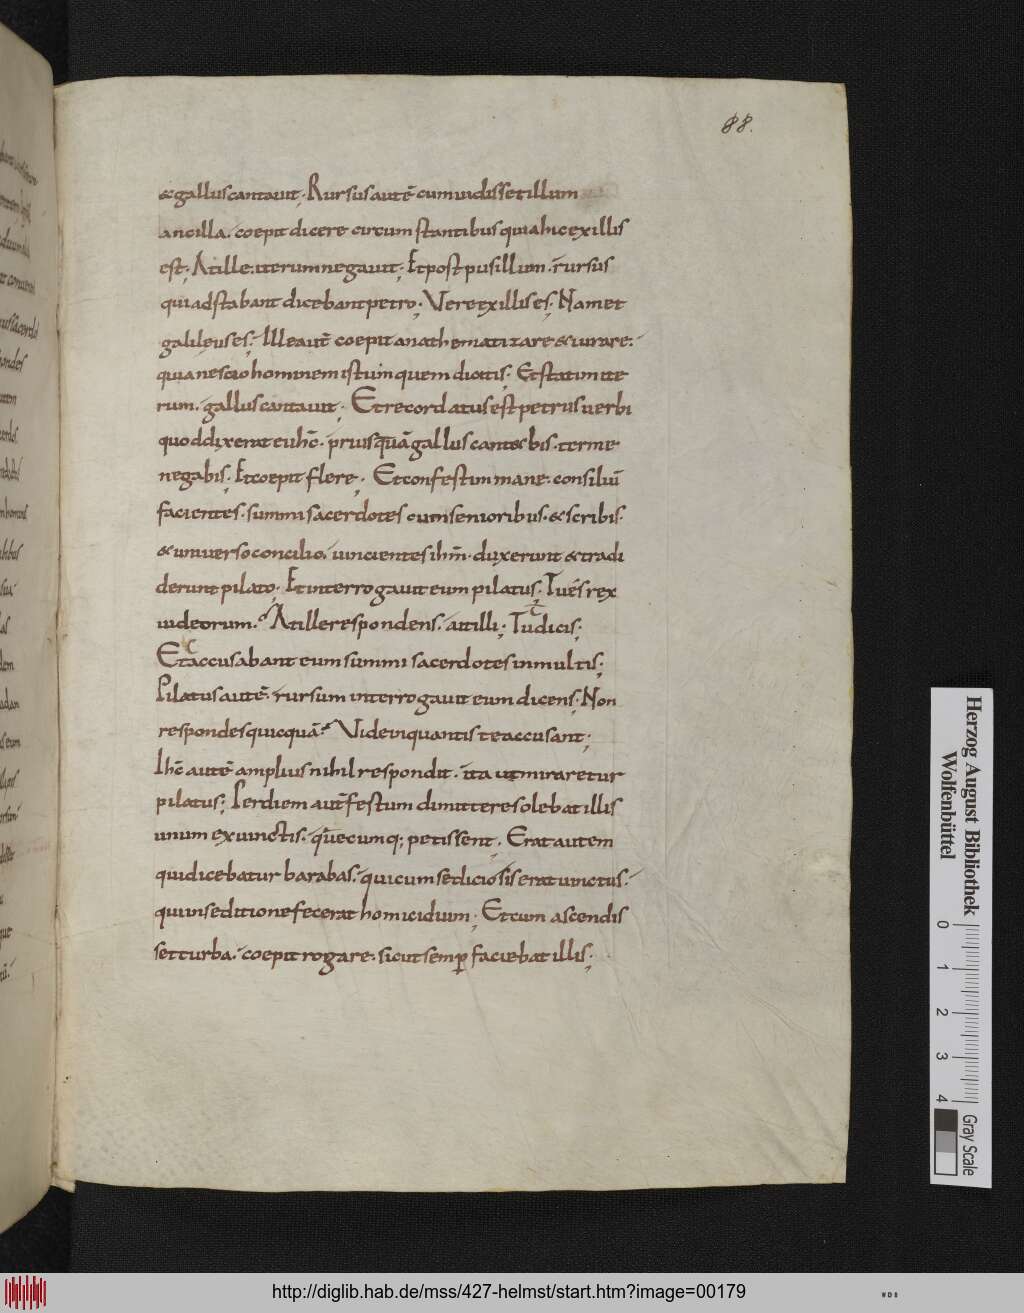 88.
& gallus cantauit; Rursus autē cum uidisset illum
ancilla. coepit dicere circum stantibus quia hic ex illis
est; At ille. iterum negauit; Et post pusillum. rursus
qui adstabant dicebant petro; Vere ex illis es; Nam et
galileus es; Ille autē coepit anathematizare & iurare.
quia nescio hominem istum quem dicitis; Et statim ite
rum. gallus cantauit; Et recordatus est petrus uerbi
quod dixerat ei ihc̄. priusquā gallus cant& bis. ter me
negabis; Et coepit flere; Et confestim mane. consiliū
facientes. summi sacerdotes cum senioribus. & scribis.
& uniuerso concilio. uincientes ihm̄. duxerunt & tradi
derunt pilato; Et interrogauit eum pilatus; Tu és rex
iudeorum. At ille respondens. ait illi; Tu dicis;
Et accusabant eum summi sacerdotes in multis;
Pilatus autē. rursum interrogauit eum dicens; Non
respondes quicquā. Vide in quantis te accusant;
Ihc̄ autē amplius nihil respondit. ita ut miraretur
pilatus; Per diem aut̄ festum dimittere solebat illis
unum ex uinctis. quēcumq; petissent; Erat autem
qui dicebatur barabas. qui cum sediciosis erat uinctus.
qui in seditione fecerat homicidium; Et cum ascendis
set turba. coepit rogare. sicut semp̄ faciebat illis;
Herzog August Bibliothek
Wolfenbüttel
0 1 2 3 4
Gray Scale
http://diglib.hab.de/mss/427-helmst/start.htm?image=00179